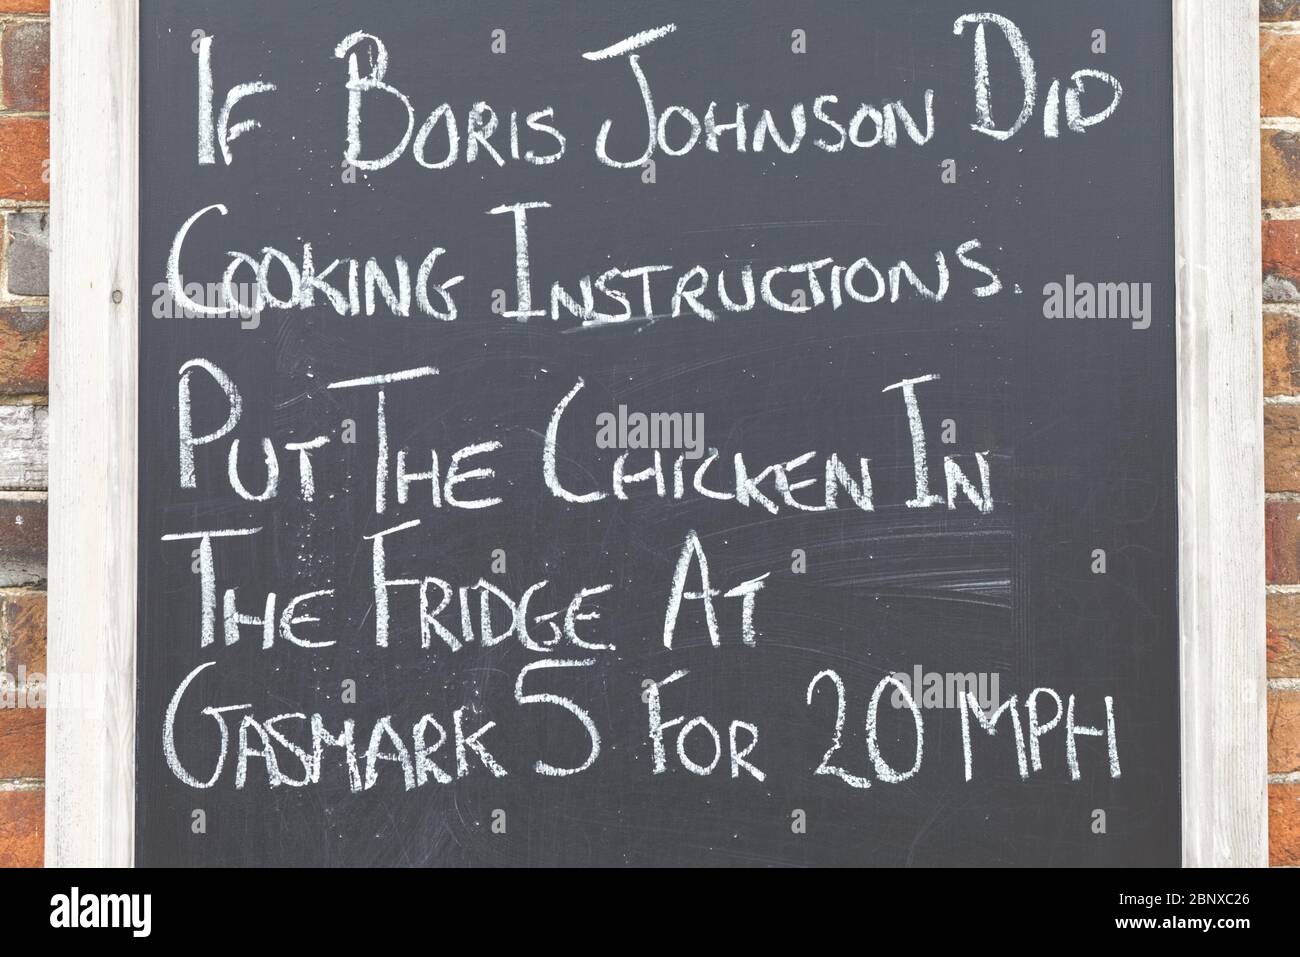 If Boris Johnson Did
Cooking Instructions.
Put The Chicken In
The Fridge At
Gasmark 5 For 20 MPH
alamy
Image ID: 2BNXC26
www.alamy.com